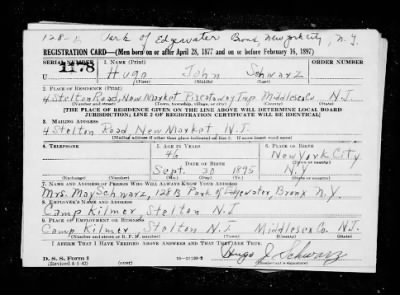 128-B Park of Edgewater Bronx New York City, N.Y.
REGISTRATION CARD—(Men born on or after April 28, 1877 and on or before February 16, 1897)
SERIAL NUMBER 1. Name (Print) ORDER NUMBER
Hugo John Schwarz
(First) (Middle) (Last)
2. Place of Residence (Print)
4 Stelton Road, New Market Piscataway Twp Middlesex Co N.J.
(Number and street) (Town, township, village, or city) (County) (State)
[THE PLACE OF RESIDENCE GIVEN ON THE LINE ABOVE WILL DETERMINE LOCAL BOARD
JURISDICTION; LINE 2 OF REGISTRATION CERTIFICATE WILL BE IDENTICAL]
3. Mailing Address
4 Stelton Road New Market N.J.
(Mailing address if other than place indicated on line 2. If same insert word same)
4. Telephone 5. Age in Years 6. Place of Birth
46 New York City
Date of Birth
Sept. 20 1895 N.Y
(Exchange) (Number) (Mo.) (Day) (Yr.) (State or country)
7. Name and Address of Person Who Will Always Know Your Address
Mrs. May Schwarz, 128B Park of Edgewater Bronx N.Y.
8. Employer's Name and Address
Camp Kilmer Stelton N.J
9. Place of Employment or Business
Camp Kilmer Stelton N.J Middlesex Co. N.J.
(Number and street or R. F. D. number) (Town) (County) (State)
I Affirm That I Have Verified Above Answers and That They Are True.
D. S. S. Form 1
(Revised 4-1-42) (over)
Hugo J. Schwarz